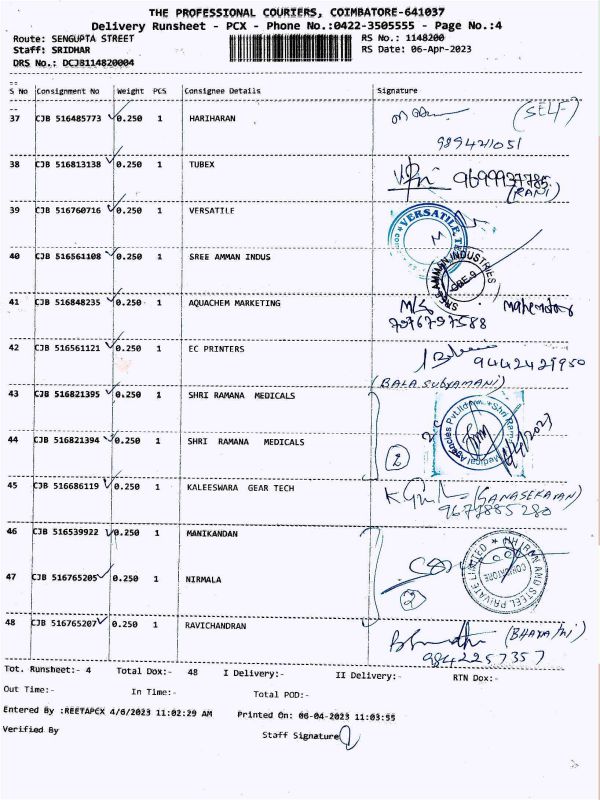 THE PROFESSIONAL COURIERS, COIMBATORE-641037
Delivery Runsheet - PCX - Phone No.:0422-3505555 - Page No.:4
Route: SENGUPTA STREET RS No.: 1148200
Staff: SRIDHAR RS Date: 06-Apr-2023
DRS No.: DCJB114820004
S No Consignment No Weight PCS Consignee Details Signature
37 CJB 516485773 0.250 1 HARIHARAN (SELF)
9894211051
38 CJB 516813138 0.250 1 TUBEX
(RANI)
39 CJB 516760716 0.250 1 VERSATILE VERSATILE
40 CJB 516561108 0.250 1 SREE AMMAN INDUS SREE AMMAN INDUSTRIES CBE-9
41 CJB 516848235 0.250 1 AQUACHEM MARKETING
42 CJB 516561121 0.250 1 EC PRINTERS
9442429950
(BALA SUBYAMANI)
43 CJB 516821395 0.250 1 SHRI RAMANA MEDICALS
44 CJB 516821394 0.250 1 SHRI RAMANA MEDICALS 2
45 CJB 516686119 0.250 1 KALEESWARA GEAR TECH (GANASEKARAN)
9677885280
46 CJB 516539922 0.250 1 MANIKANDAN
47 CJB 516765205 0.250 1 NIRMALA 2
AND STEEL PRIVATE LIMITED COIMBATORE
48 CJB 516765207 0.250 1 RAVICHANDRAN
9842257357
Tot. Runsheet:- 4 Total Dox:- 48 I Delivery:- II Delivery:- RTN Dox:-
Out Time:- In Time:- Total POD:-
Entered By :REETAPCX 4/6/2023 11:02:29 AM Printed On: 06-04-2023 11:03:55
Verified By Staff Signature